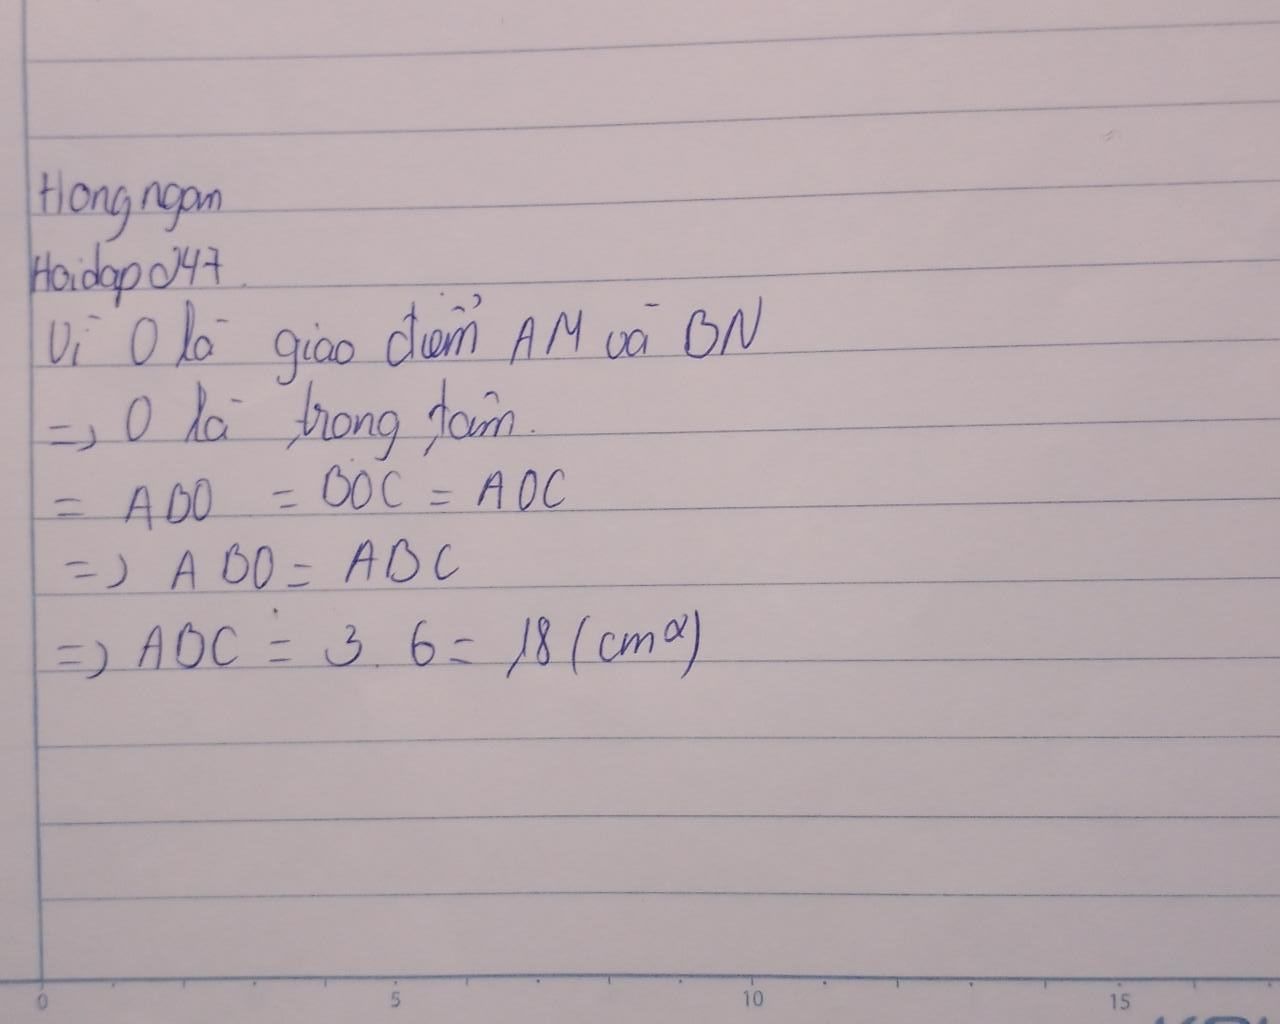 Hongngam
Hoidap247
Vì O là giao điểm AM và BN
=> O là trọng tâm.
= ABO = BOC = AOC
=> ABO = ABC
=> ABC = 3.6 = 18 (cm2)
0 5 10 15